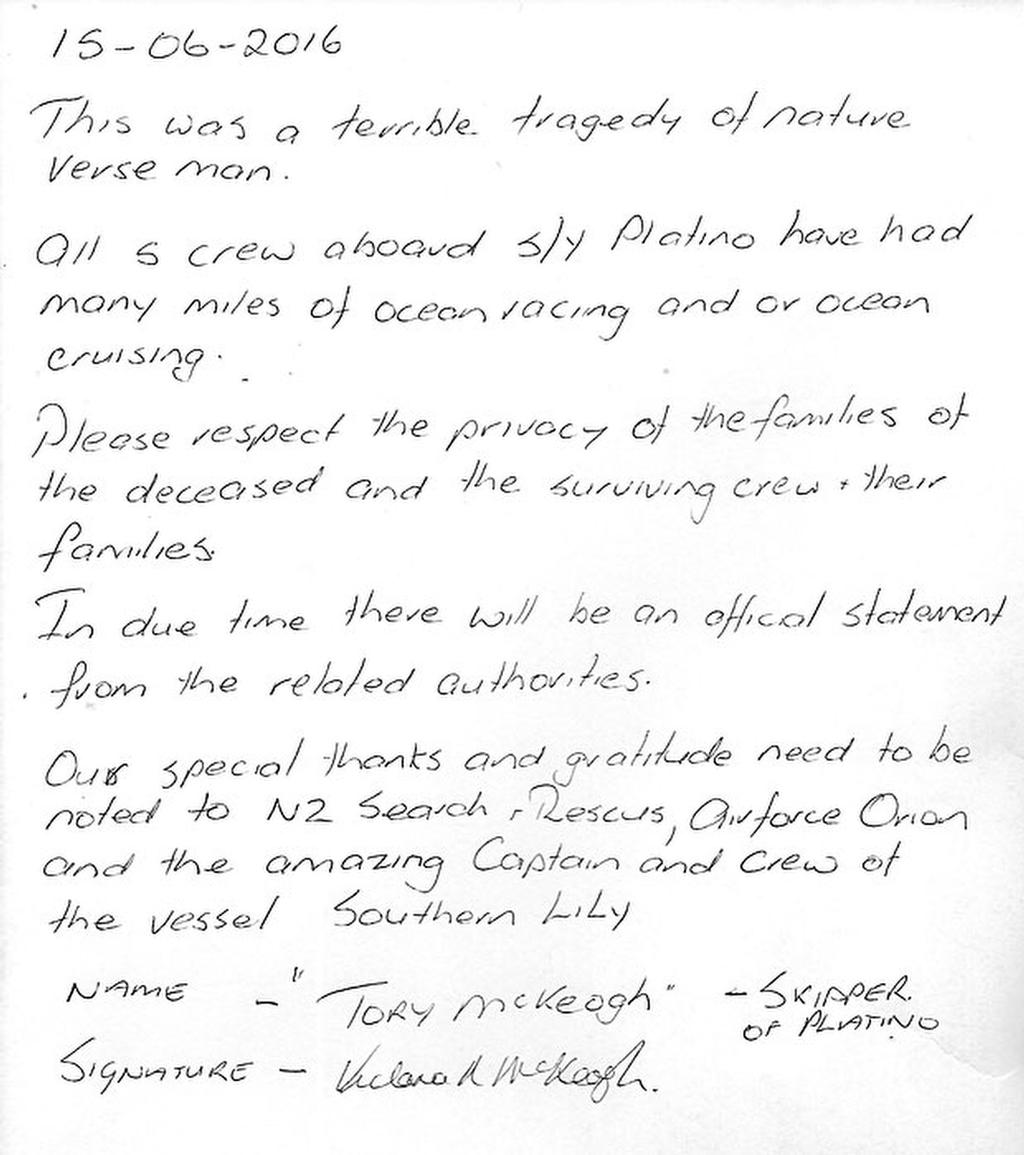 15-06-2016
This was a terrible tragedy of nature
verse man.
All 5 crew aboard s/y Platino have had
many miles of ocean racing and or ocean
cruising.
Please respect the privacy of the families of
the deceased and the surviving crew + their
families.
In due time there will be an offical statement
from the related authorities.
Our special thanks and gratitude need to be
noted to NZ Search + Rescus, Airforce Orion
and the amazing Captain and Crew of
the vessel Southern LiLy
NAME - "TORY McKeogh" - SKIPPER.
OF PLATINO
SIGNATURE - McKeogh.